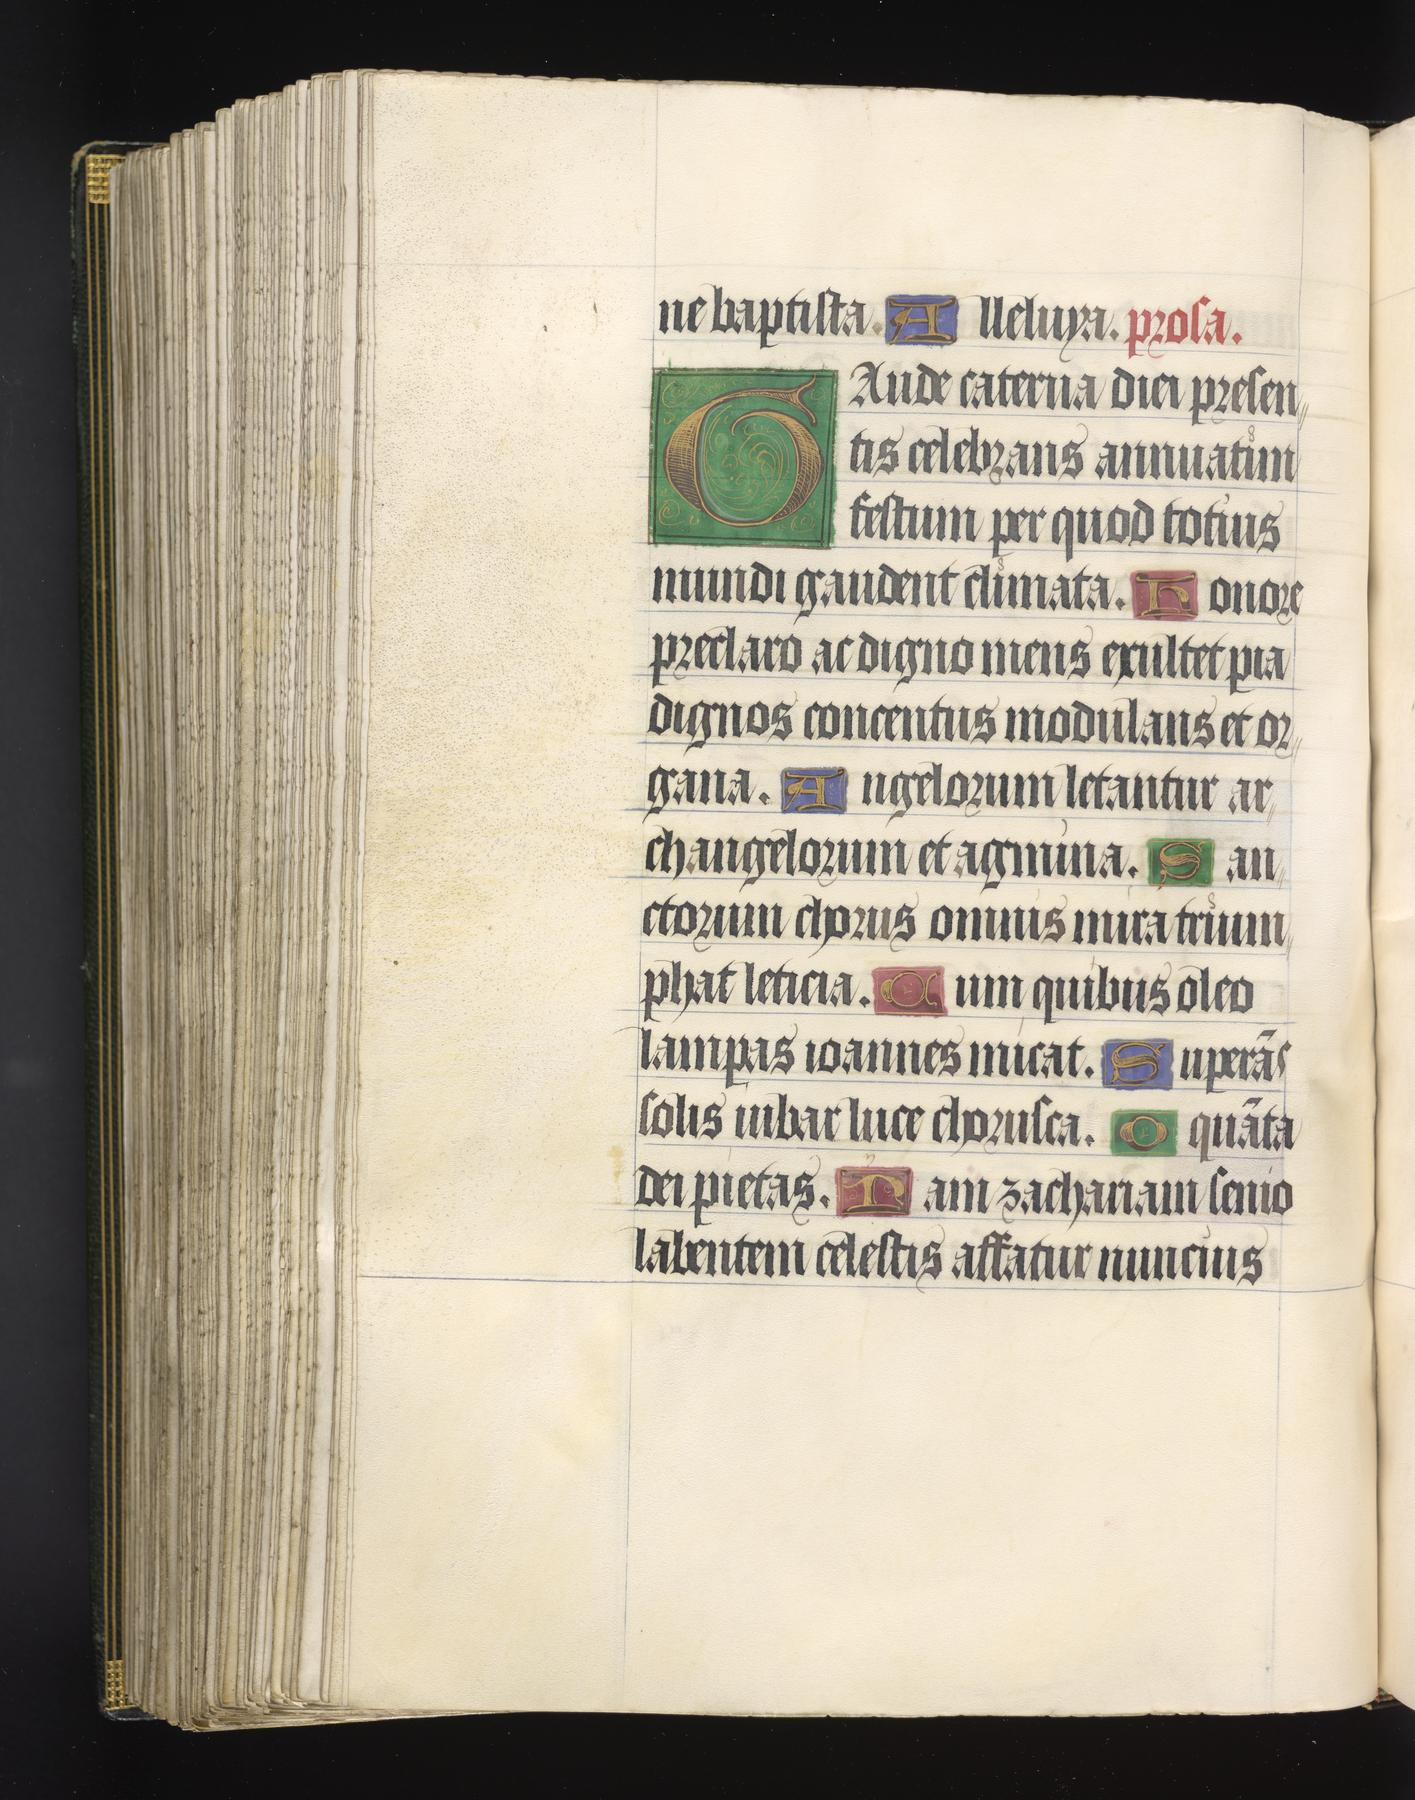 ne baptista. Alleluya. prosa.
GAude caterna diei presen
tis celebrans annuatim
festum per quod totius
mundi gaudent climata. Honore
preclaro ac digno mens exultet pia
dignos concentus modulans et or
gana. Angelorum letantur ar
changelorum et agmina. San
ctorum chorus omnis mira trium
phat leticia. Cum quibus oleo
lampas ioannes micat. Superās
solis iubar luce chorusca. O quāta
dei pietas. Nam zachariam senio
labentem celestis affatur nuncius